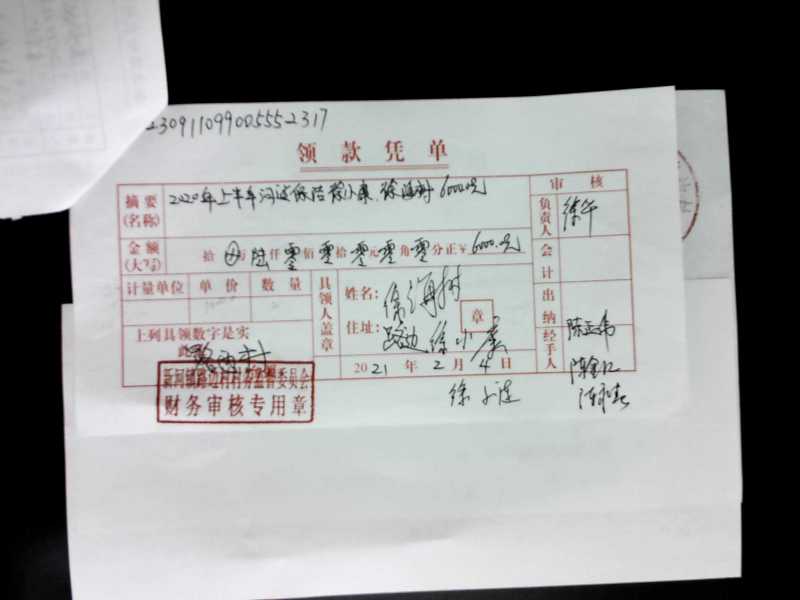 230911099005552317
领款凭单
摘要(名称) 2020年上半年河边保洁徐小康、徐海树6000元
审核
负责人 徐午
金额(大写) 拾 万陆仟零佰零拾零元零角零分正¥6000.元
会计
计量单位 单价 数量
具领人盖章
姓名: 徐海树
住址: 路边徐小康
章
出纳
上列具领数字是实
此 路边村
经手人 陈正伟
2021年2月4日
陈金江
新河镇路边村村务监督委员会
财务审核专用章
徐